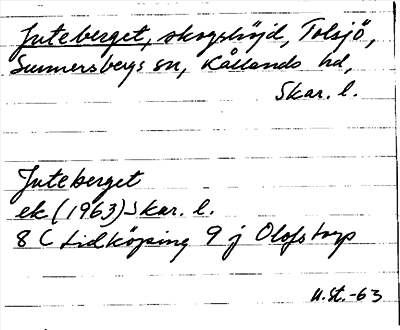 Juteberget, skogshöjd, Tolsjö,
Sunnersbergs sn, Kållands hd,
Skar. l.
Juteberget
ek (1963) Skar. l.
8 C Lidköping 9 j Olofstorp
U.St.-63